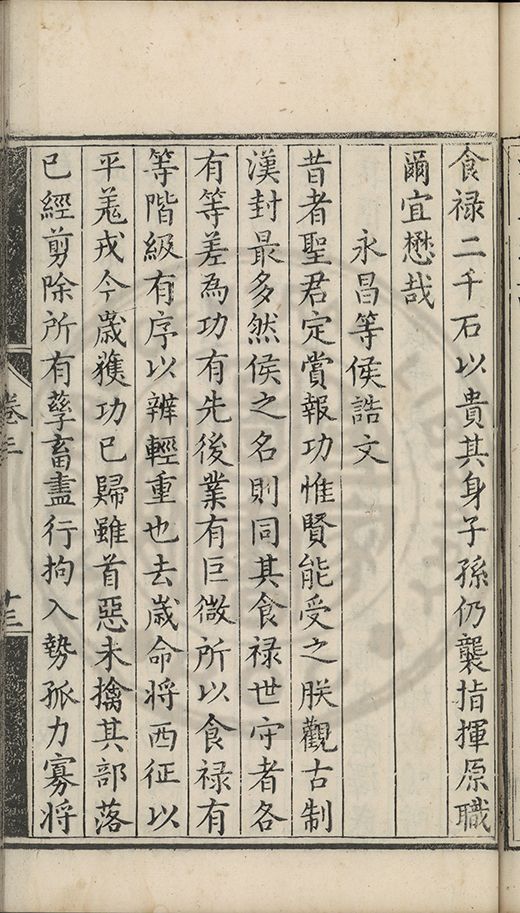 食禄二千石以貴其身子孫仍襲指揮原職
爾宜懋哉
永昌等侯誥文
昔者聖君定賞報功惟賢能受之朕觀古制
漢封最多然侯之名則同其食禄世守者各
有等差為功有先後業有巨微所以食禄有
等階級有序以辨輕重也去歳命将西征以
平羗戎今歳獲功已歸雖首惡未擒其部落
已經剪除所有孽畜盡行拘入勢孤力寡将
卷三
十三